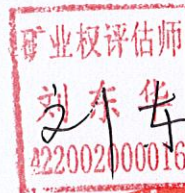 矿业权评估师
刘东华
422002000016